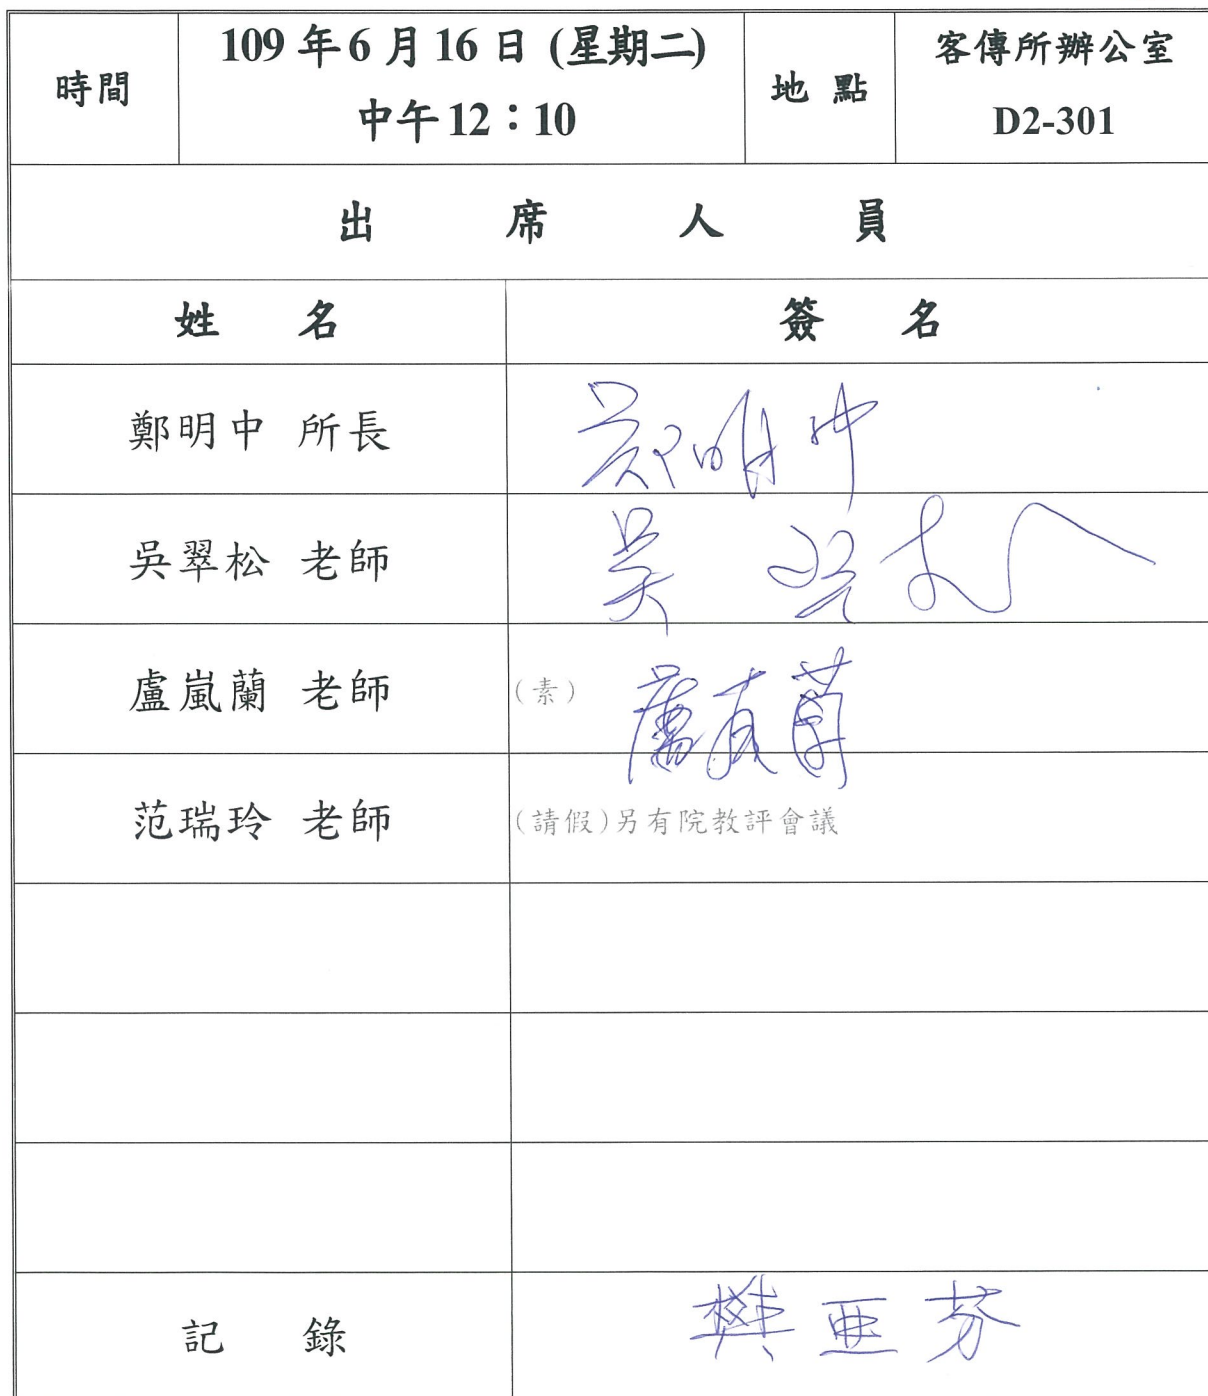 時間
109 年 6 月 16 日 (星期二)
中午 12：10
地 點
客傳所辦公室
D2-301
出 席 人 員
姓 名
簽 名
鄭明中 所長
鄭明中
吳翠松 老師
吳翠松
盧嵐蘭 老師
(素)
盧嵐蘭
范瑞玲 老師
(請假)另有院教評會議
記 錄
樊亜芬